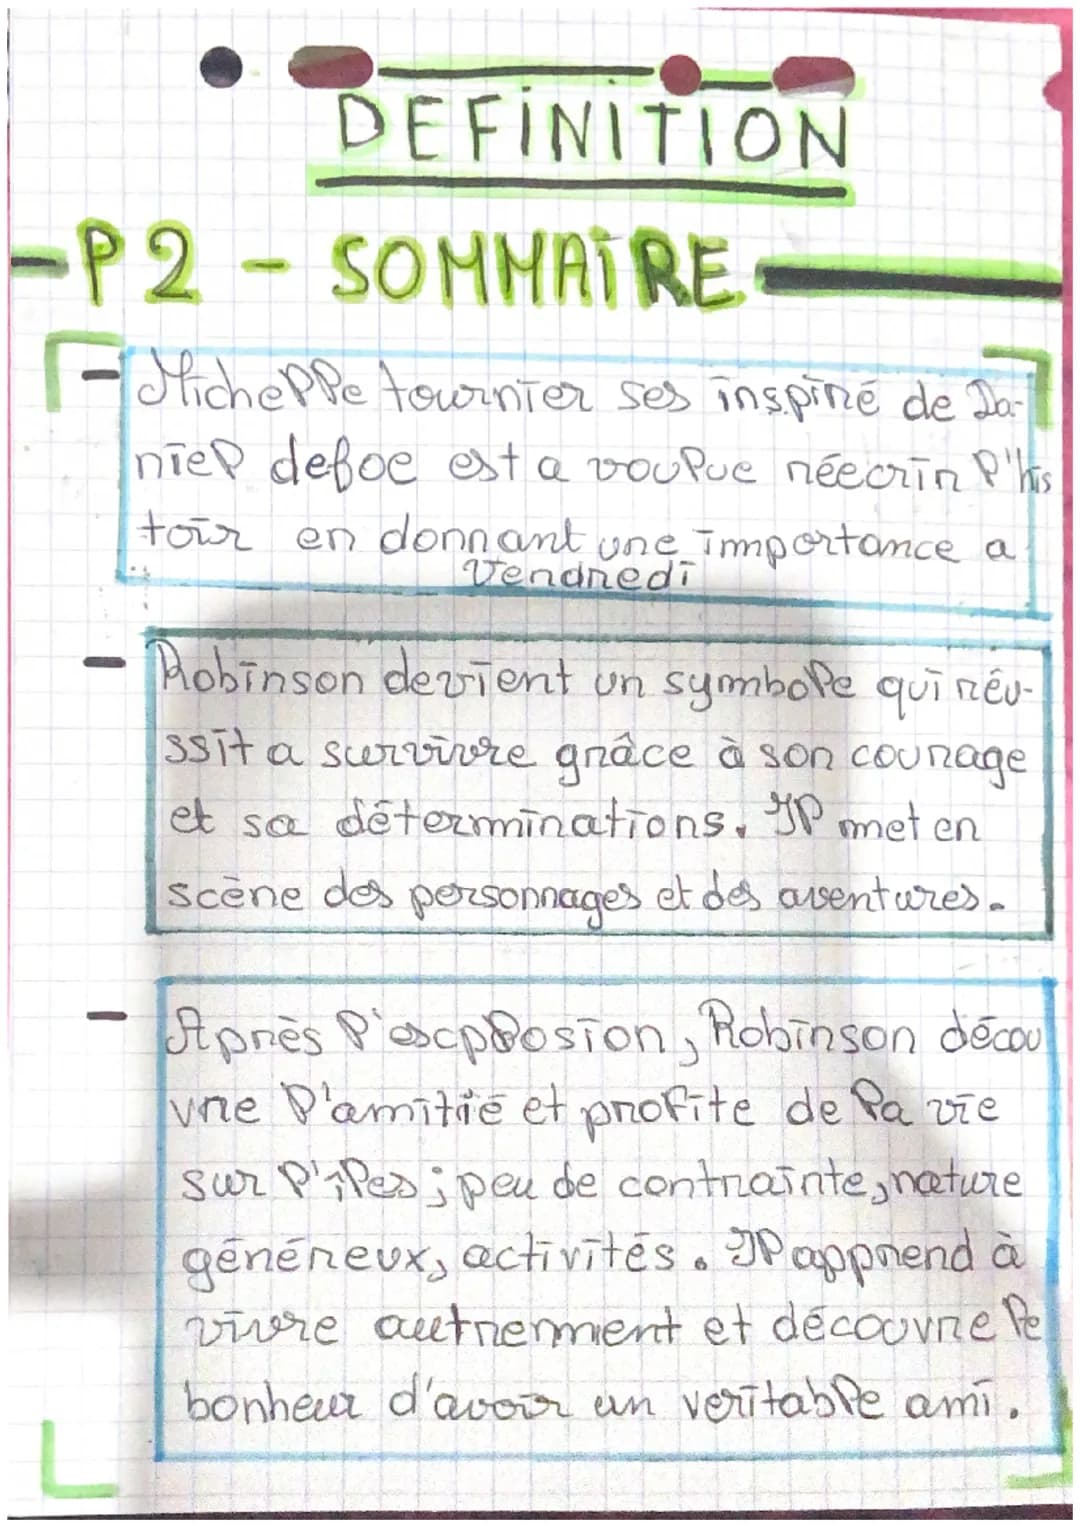 DEFINITION
- P2 - SOMMAIRE
- Michelle tournier ses inspiré de Da-
niel defoe est a voulue réecrir l'his
toir en donnant une importance a
Vendredi
- Robinson devient un symbole qui réu-
ssit a survivre grâce à son courage
et sa déterminations. Il met en
scène des personnages et des aventures.
- Après l'escplosion, Robinson décou
vre l'amitié et profite de la vie
sur l'îles ; peu de contrainte, nature
généreux, activités. Il apprend à
vivre autrement et découvre le
bonheur d'avoir un veritable ami.